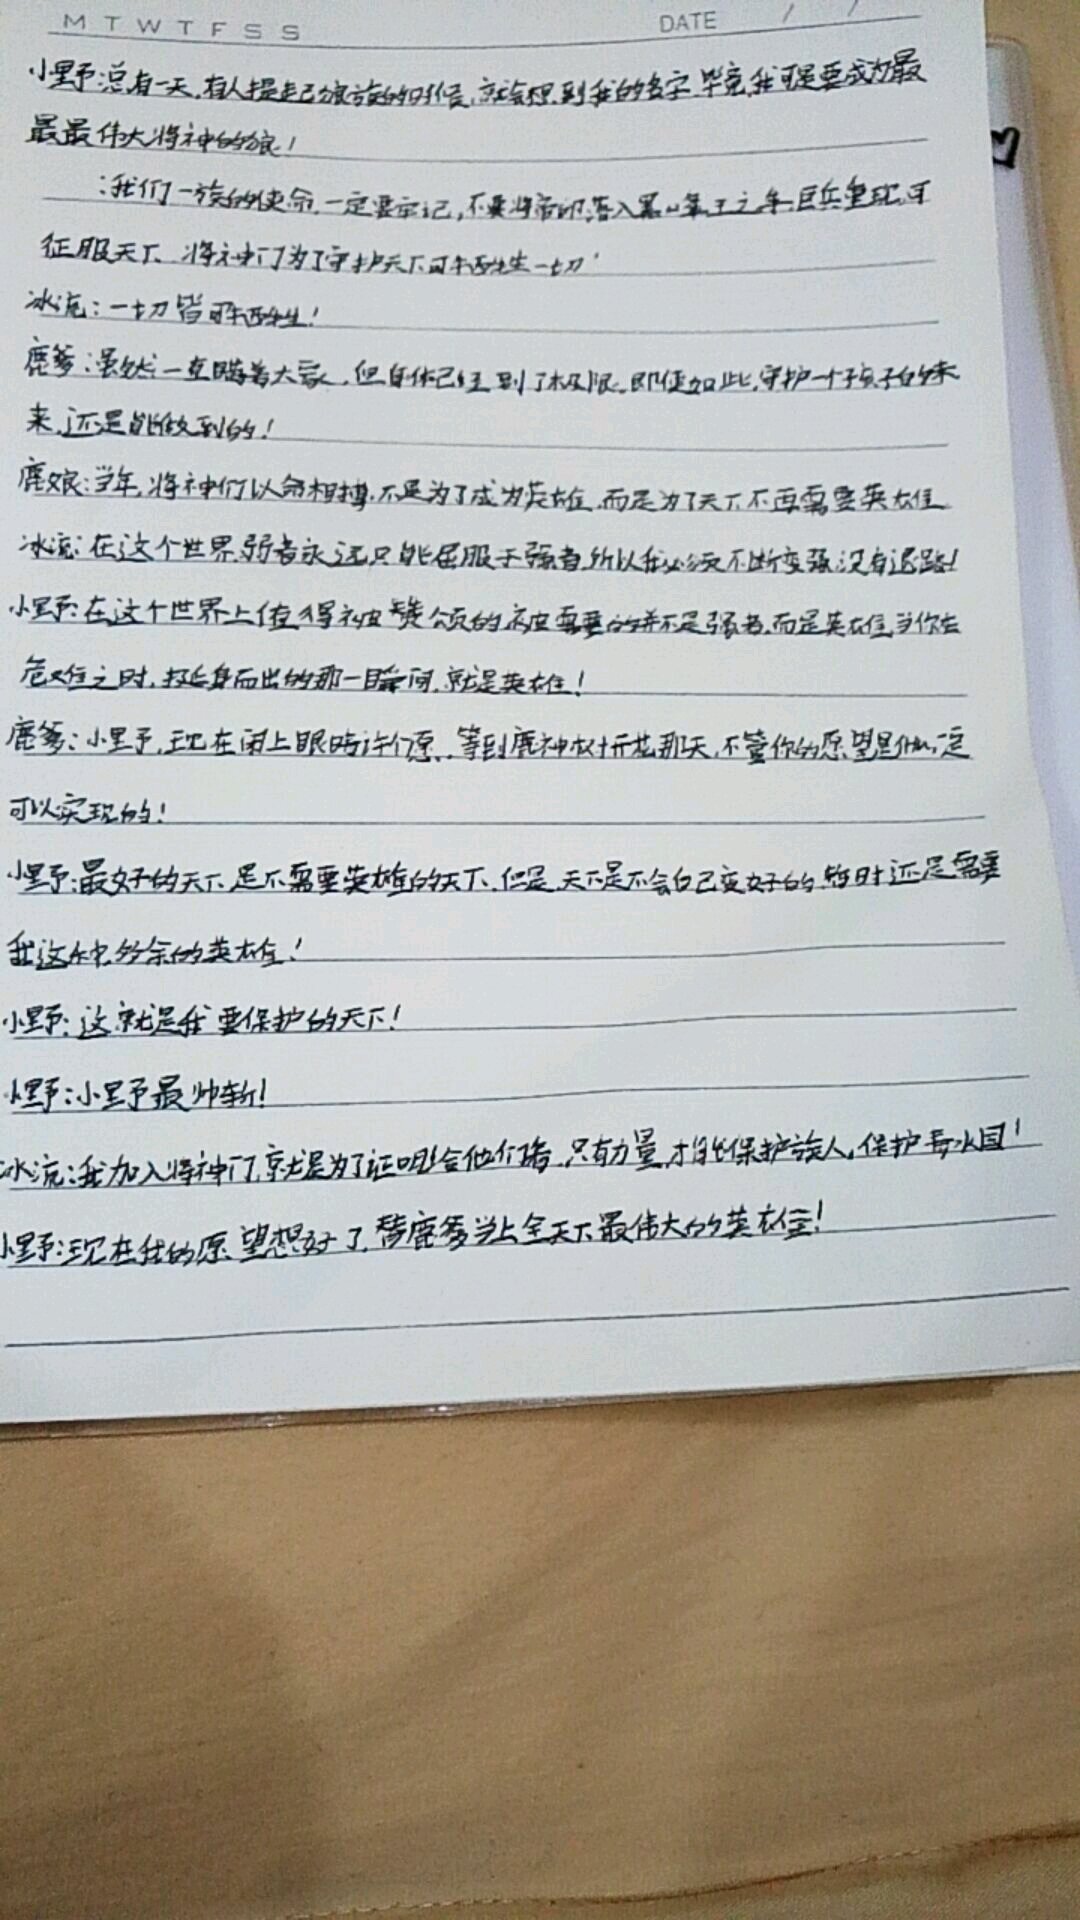 M T W T F S S
DATE / /
小野:总有一天,有人提起己狼族的时候,就会想到我的名字,毕竟,我可是要成为最
最最伟大将神的狼!
:我们一族的使命,一定要牢记,不要将密印,落入黑山军,王之军,巨兵重现,可
征服天下 将神门为了守护天下可牺牲一切!
冰流:一切皆可牺牲!
鹿爹:虽然一直瞒着大家,但身体已经到了极限,即便如此,守护一个孩子的未
来,还是能做到的!
鹿娘:当年,将神们以命相搏,不是为了成为英雄,而是为了天下不再需要英雄
冰流:在这个世界,弱者永远只能屈服于强者,所以我必须不断变强,没有退路!
小野:在这个世界上值得被赞颂的,被需要的并不是强者,而是英雄,当你在
危难之时,挺身而出的那一瞬间,就是英雄!
鹿爹:小野,现在闭上眼睛许个愿,等到鹿神树开花那天,不管你的愿望是什么,一定
可以实现的!
小野:最好的天下,是不需要英雄的天下,但是,天下是不会自己变好的,暂时还是需要
我这种多余的英雄!
小野:这就是我要保护的天下!
小野:小野最帅斩!
冰流:我加入将神门,就是为了证明给他们看,只有力量,才能保护族人,保护寿水国!
小野:现在我的愿望想好了,替鹿爹当上全天下最伟大的英雄!